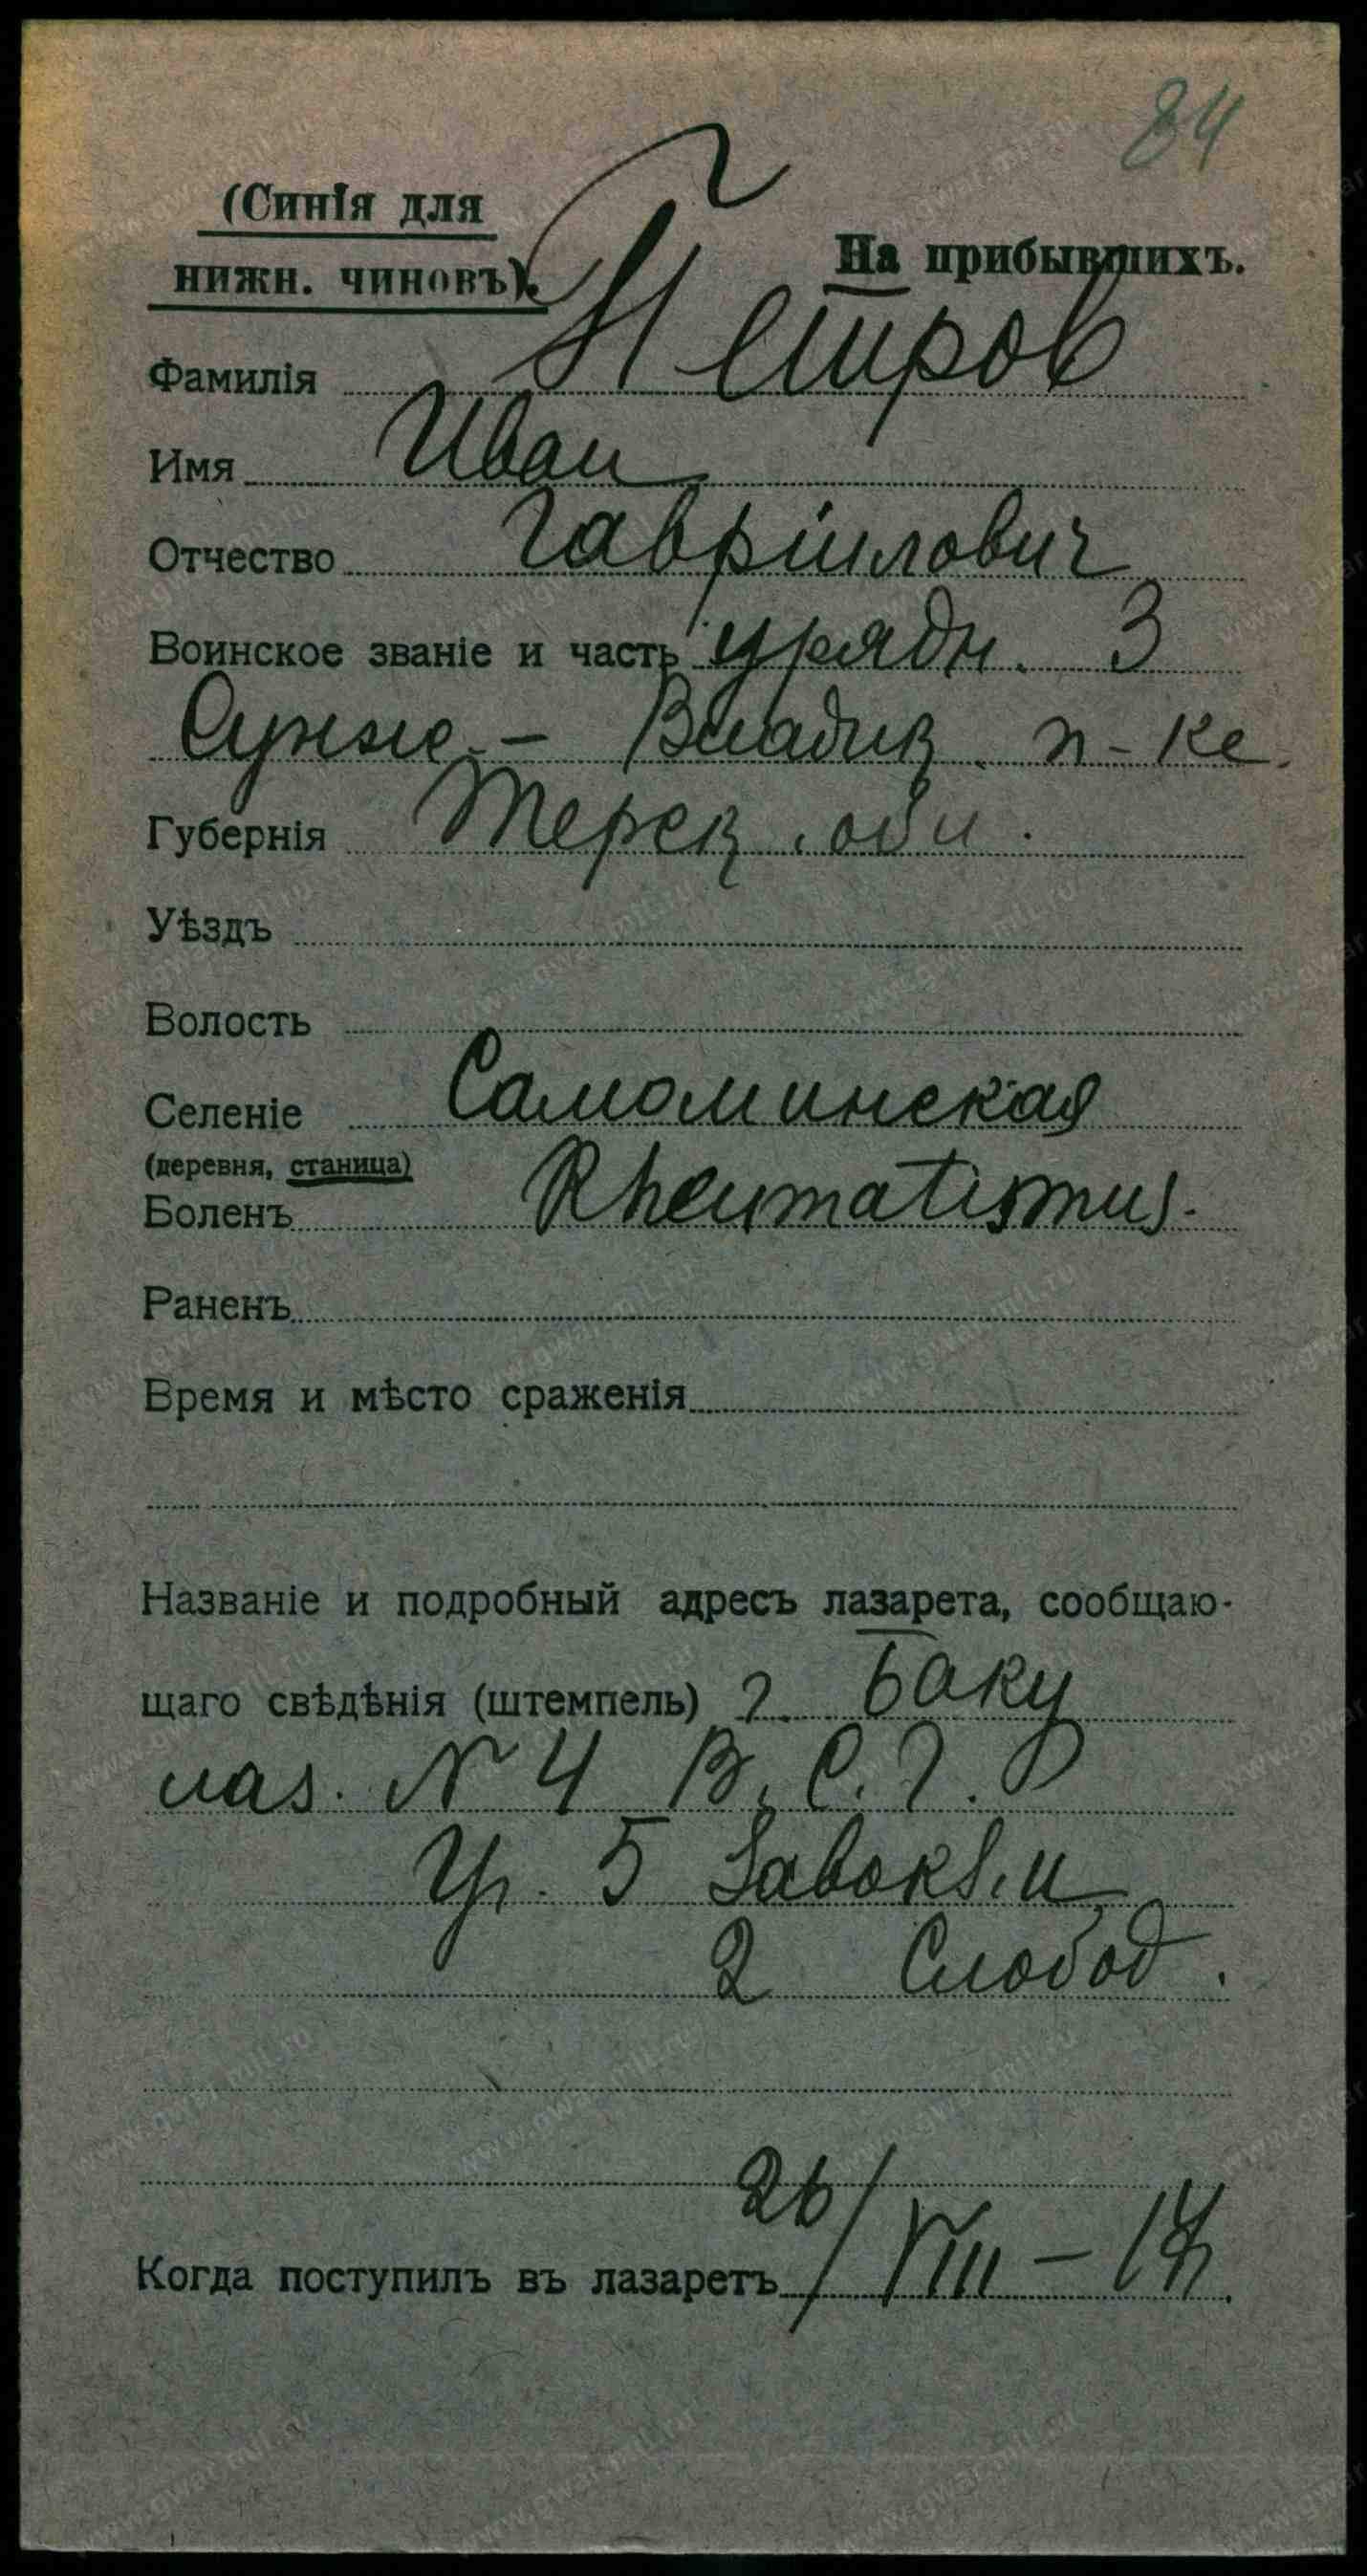 84
(Синія для
нижн. чиновъ).
На прибывшихъ.
Фамилія Петров
Имя Иван
Отчество Гавріилович
Воинское званіе и часть урядн. 3
Сунже - Владик. п-ке.
Губернія Терск. обл.
Уѣздъ
Волость
Селеніе Самоминская
(деревня, станица)
Боленъ Rheumatismus.
Раненъ
Время и мѣсто сраженія
Названіе и подробный адресъ лазарета, сообщаю-
щаго свѣдѣнія (штемпель) г. Баку
лаз. N 4 В. С. Г.
Уг. 5 Завокз. и
2 Слобод.
Когда поступилъ въ лазаретъ 26/VIII - 17